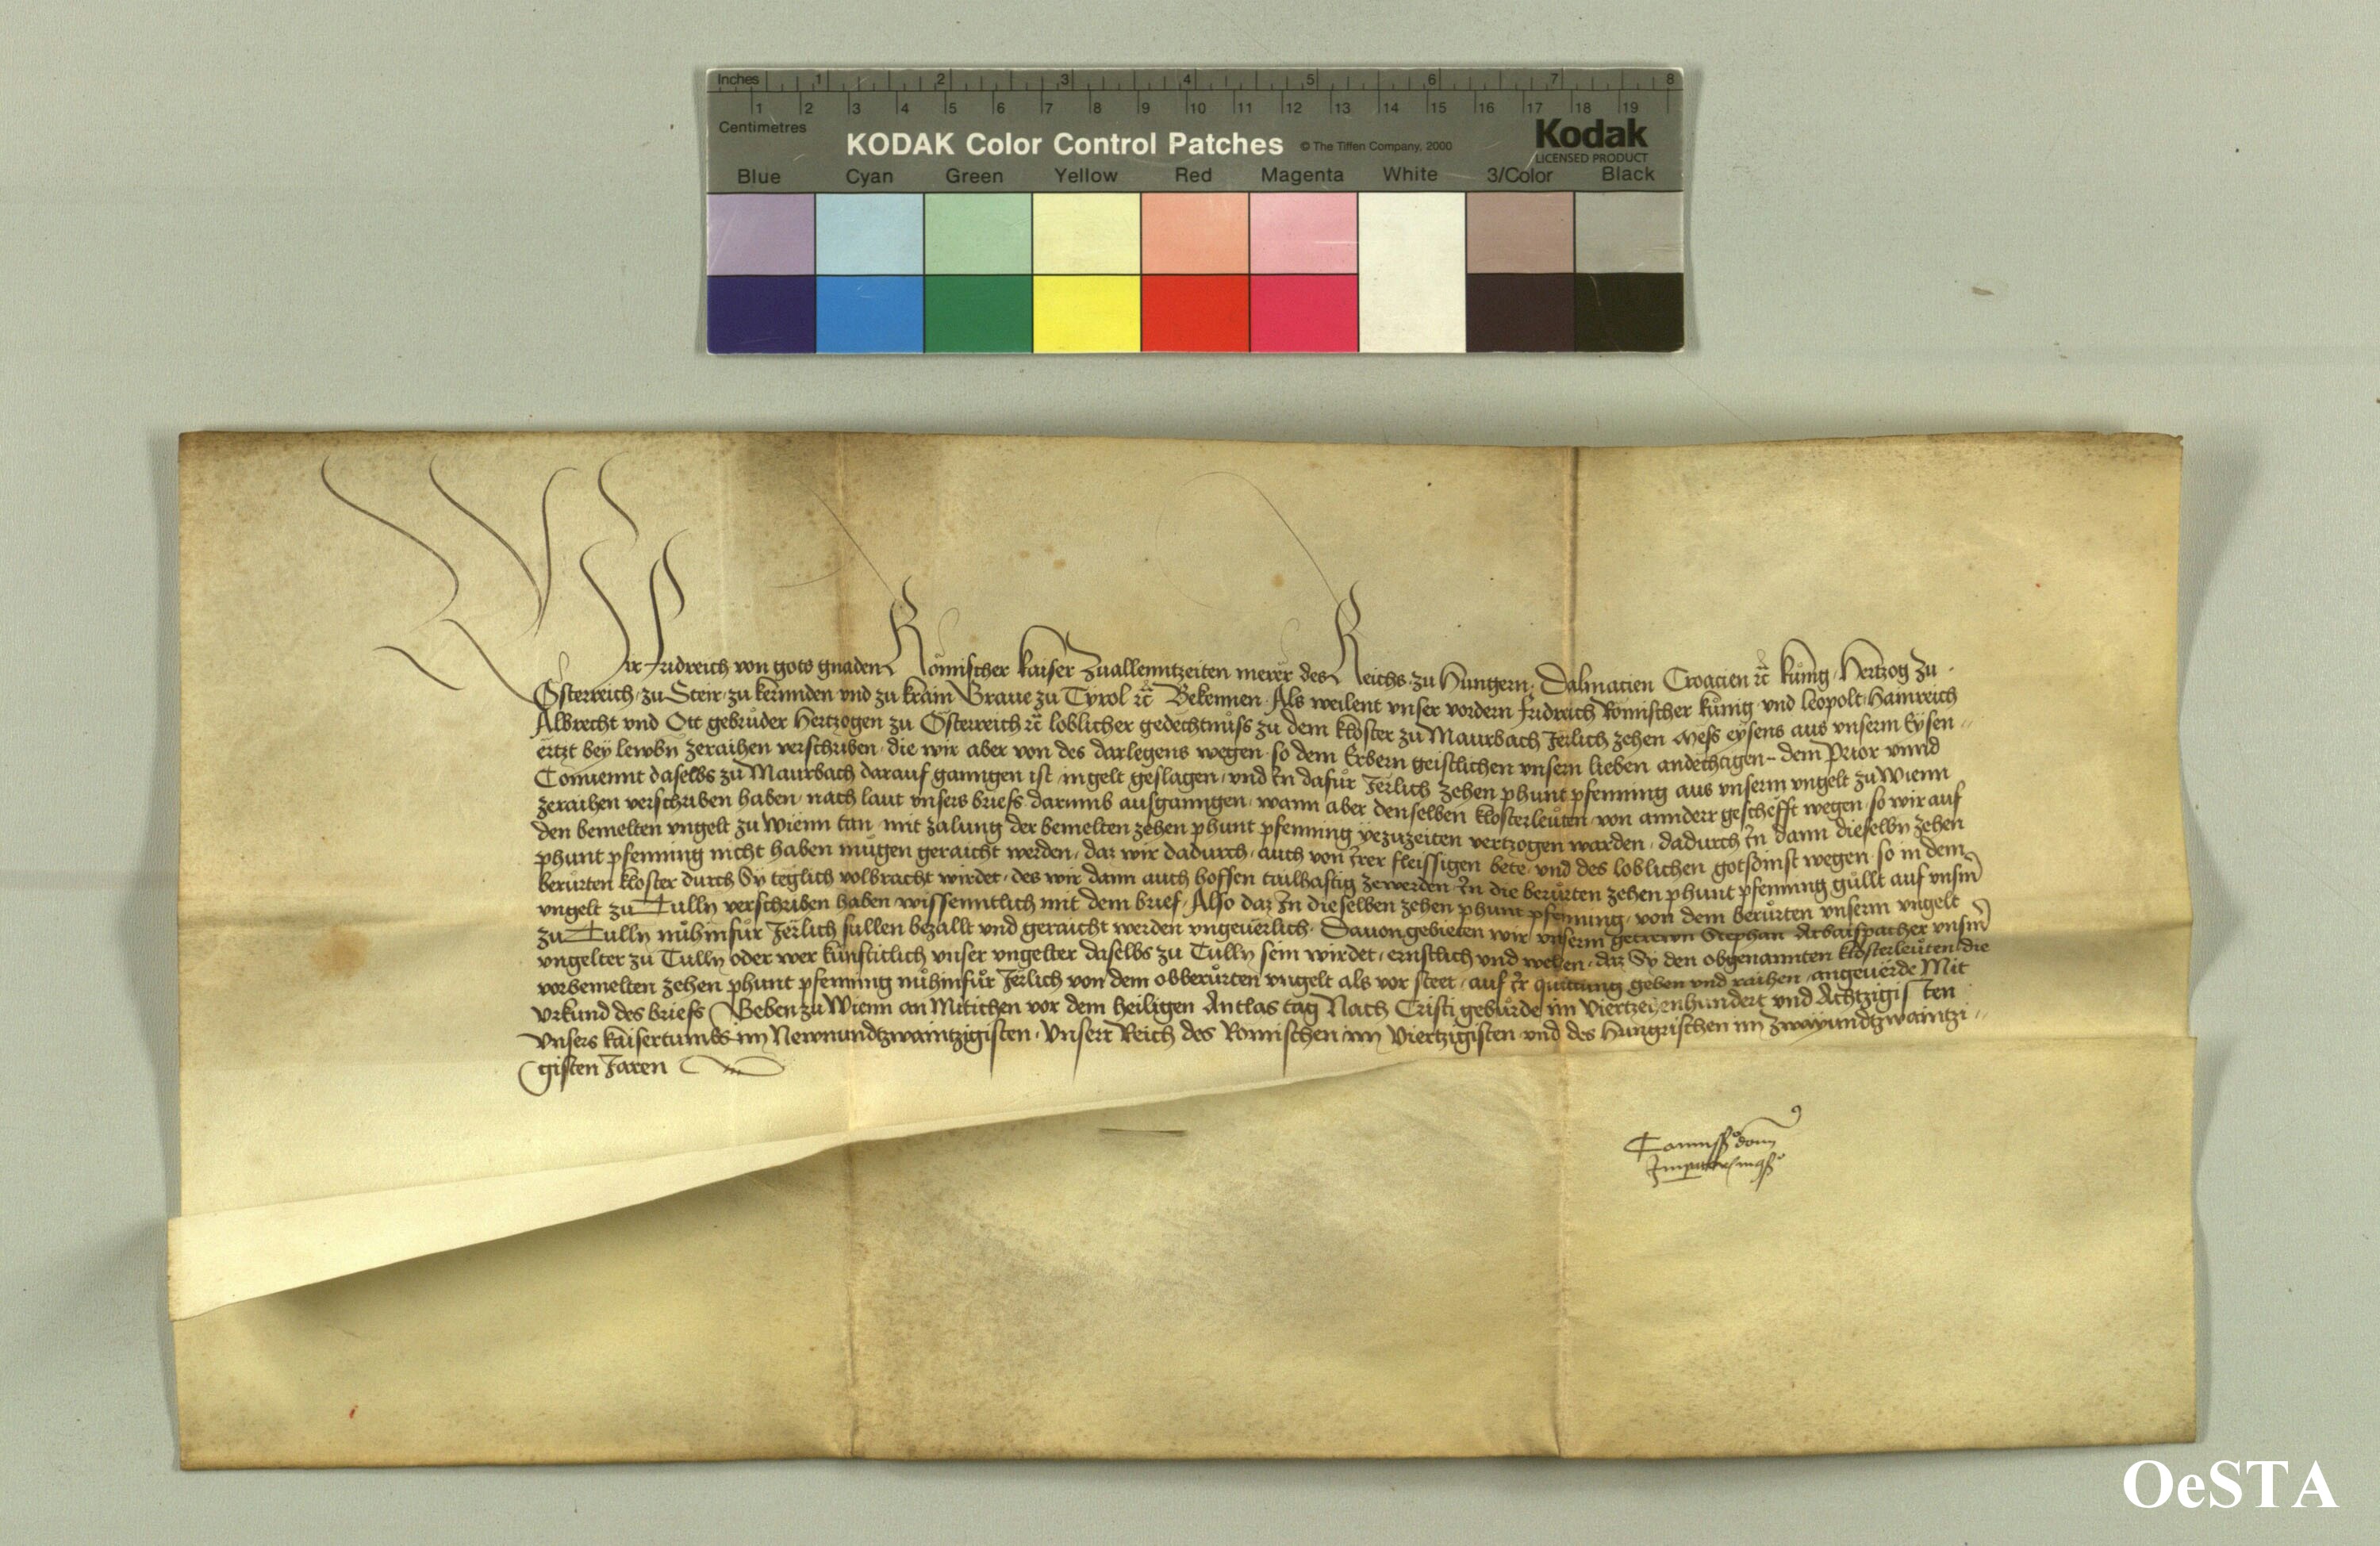 Inches 1 2 3 4 5 6 7 8
1 2 3 4 5 6 7 8 9 10 11 12 13 14 15 16 17 18 19
Centimetres
KODAK Color Control Patches © The Tiffen Company, 2000 Kodak
LICENSED PRODUCT
Blue Cyan Green Yellow Red Magenta White 3/Color Black
Wir Fridreich von gots gnaden Römischer kaiser Zuallenntzeiten merer des Reichs zu Hungern, Dalmacien Croacien ꝛc̃ kunig, Hertzog zu
Österreich, zu Steir, zu kernnden vnd zu krain Graue zu Tyrol ꝛc̃ Bekennen, Als weilent vnser vordern Fridreich Römischer kunig vnd leopolt, Hainreich
Albrecht vnd Ott gebruder Hertzogen zu Österreich ꝛc̃ loblicher gedechtnuss zu dem kloster zu Maurbach Jerlich zehen Mess eysens aus vnserm Eysen
ertzt bey lewbn zeraihen verschriben, die wir aber von des darlegens wegen so dem Erbern geistlichen vnsern lieben andechtigen dem Prior vnnd
Conuennt daselbs zu Maurbach darauf ganngen ist, in gelt geslagen, vnd In dafur Jerlich zehen phunt pfenning aus vnserm vngelt zu Wienn
zeraihen verschriben haben, nach laut vnsers briefs darumb ausganngen, wann aber denselben klosterleuten von annderr geschefft wegen so wir auf
den bemelten vngelt zu Wienn tun, mit zalung der bemelten zehen phunt pfenning yezuzeiten vertzogen warden, dadurch In dann dieselbn zehen
phunt pfenning nicht haben mugen geraicht werden, daz wir dadurch, auch von Irer fleissigen bete, vnd des loblichen gotsdinst wegen so in dem
berurten kloster durch Sy teglich volbracht wirdet, des wir dann auch hoffen tailhaftig zewerden, In die berurten zehen phunt pfenning gullt auf vnsm
vngelt zu Tulln verschriben haben wissenntlich mit dem brief, Also daz In dieselben zehen phunt pfenning, von dem berurten vnserm vngelt
zu Tulln nuhinfur Jerlich sullen bezallt vnd geraicht werden vngeuerlich. Dauon gebieten wir vnserm getrewn Stephan vnsm
vngelter zu Tulln oder wer kunfticlich vnser vngelter daselbs zu Tulln sein wirdet, ernstlich vnd wellen, daz Sy den obgenannten klosterleuten die
vorbemelten zehen phunt pfenning nuhinfur Jerlich von dem obberurten vngelt als vor steet, auf Ir quittung geben vnd raihen, angeuerde Mit
vrkund des briefs Geben zu Wienn an Mitichen vor dem heiligen Antlas tag Nach Cristi geburde im Viertzehenhundert vnd Achtzigisten
vnsers kaisertumbs im Newnundtzwaintzigisten, vnserr Reich des Römischen im Viertzigisten vnd des Hungrischen im Zwayundtzwaintzi
gisten Jaren
Comissio domi
Imperatoris
OeSTA